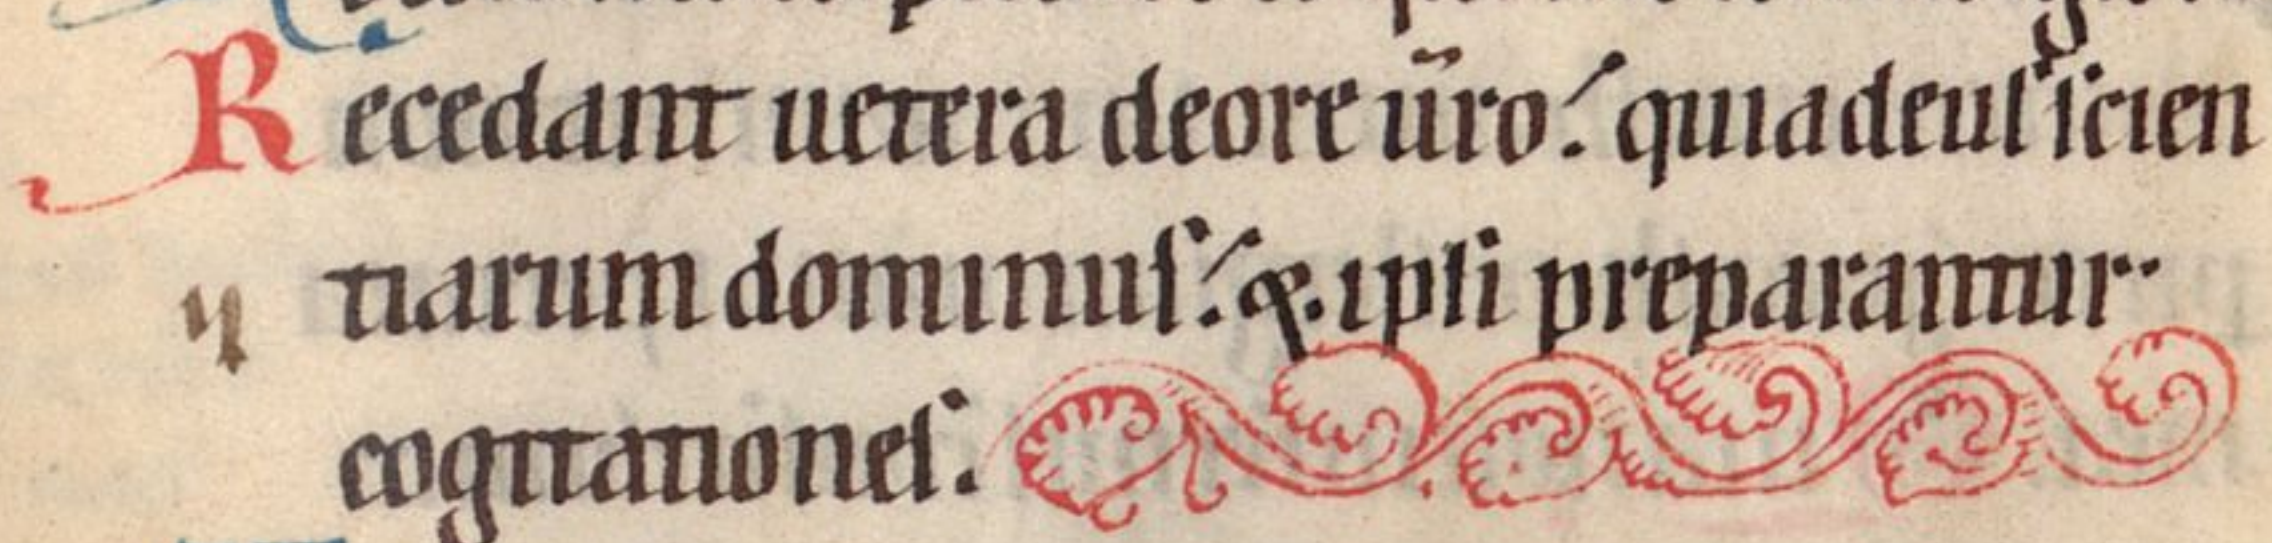 Recedant uetera deore ūro: quiadeus scien
tiarum dominus: & ipsi preparantur.
cogitationes.